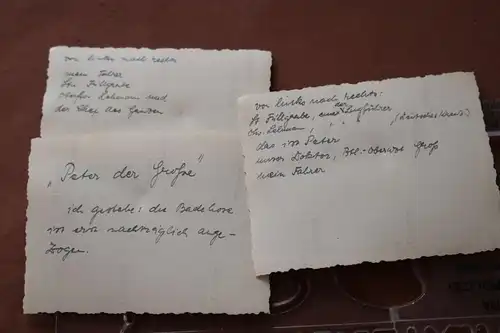 von links nach rechts
mein Fahrer
Lt. Füllgrabe
Oberfw. Lehmann und
der Chef das Ganzen
"Peter der Große"
ich gestehe: die Badehose
ist erst nachträglich ange-
zogen.
von links nach rechts:
Lt. Füllgrabe, einer der Zugführer
Lehmann, " " "
das ist Peter
unser Doktor, Groß
mein Fahrer